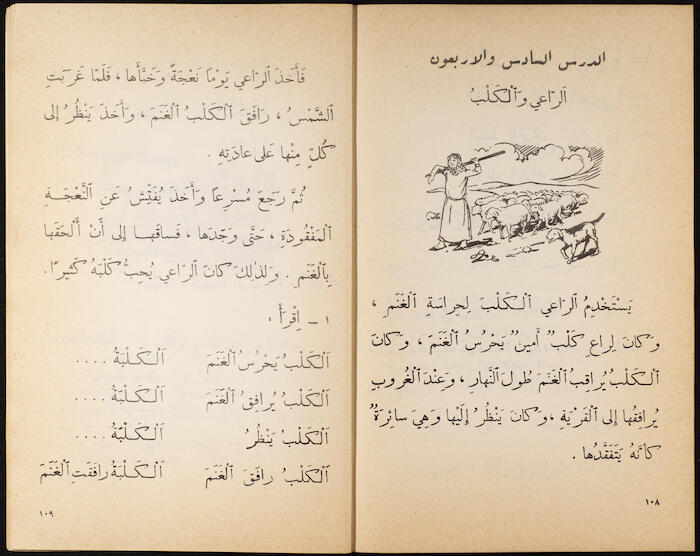 الدرس السادس والاربعون
اَلرّاعي وَٱلْكَلْبُ
يَسْتَخْدِمُ ٱلرّاعي ٱلْكَلْبَ لِحِراسَةِ ٱلْغَنَمِ ،
وَكانَ لِراعٍ كَلْبٌ أَمينٌ يَحْرُسُ ٱلْغَنَمَ ، وَكانَ
ٱلْكَلْبُ يُراقِبُ ٱلْغَنَمَ طُولَ ٱلنَّهارِ ، وَعِنْدَ ٱلْغُروبِ
يُرافِقُها إِلى ٱلْقَرْيَةِ ، وَكانَ يَنْظُرُ إِلَيْها وَهِيَ سائِرَةٌ
كَأَنَّهُ يَتَفَقَّدُها .
١٠٨
فَأَخَذَ ٱلرّاعي يَوْمًا نَعْجَةً وَخَبَّأَها ، فَلَمّا غَرَبَتِ
ٱلشَّمْسُ ، رافَقَ ٱلْكَلْبُ ٱلْغَنَمَ ، وَأَخَذَ يَنْظُرُ إِلى
كُلٍّ مِنْها عَلى عادَتِهِ .
ثُمَّ رَجَعَ مُسْرِعًا وَأَخَذَ يُفَتِّشُ عَنِ ٱلنَّعْجَةِ
ٱلْمَفْقُودَةِ ، حَتّى وَجَدَها ، فَساقَها إِلى أَنْ أَلْحَقَها
بِٱلْغَنَمِ . وَلِذٰلِكَ كانَ ٱلرّاعي يُحِبُّ كَلْبَهُ كَثيرًا .
١ – اِقْرَأْ :
اَلْكَلْبُ يَحْرُسُ ٱلْغَنَمَ اَلْكَلْبَةُ ....
اَلْكَلْبُ يُرافِقُ ٱلْغَنَمَ اَلْكَلْبَةُ ....
اَلْكَلْبُ يَنْظُرُ اَلْكَلْبَةُ ....
اَلْكَلْبُ رافَقَ ٱلْغَنَمَ اَلْكَلْبَةُ رافَقَتِ ٱلْغَنَمَ
١٠٩